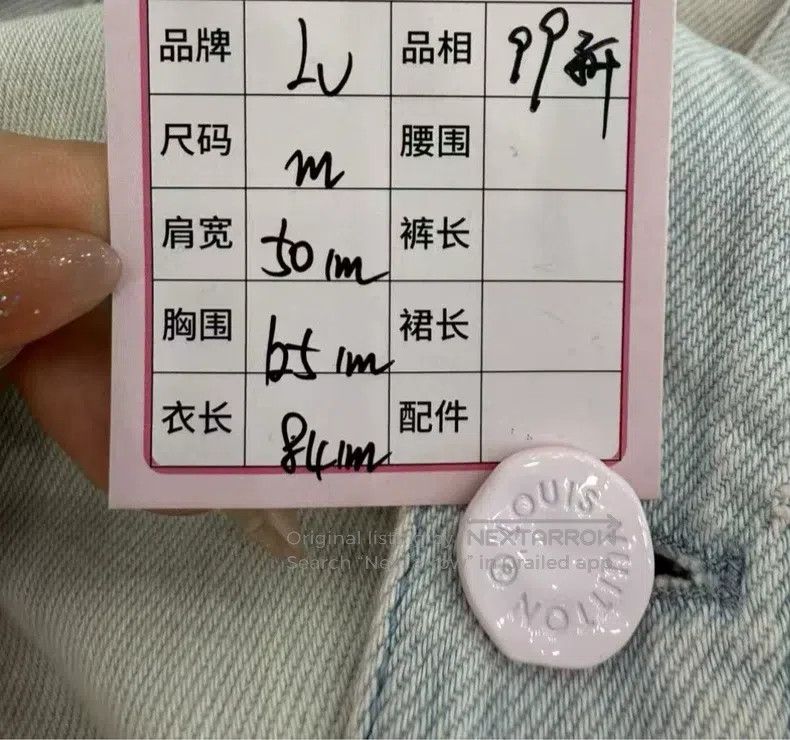 品牌 LV 品相 99新
尺码 m 腰围
肩宽 50cm 裤长
胸围 65cm 裙长
衣长 84cm 配件
LOUIS VUITTON ®
Original listing by NEXTARROW
Search “Nextarrow” in Grailed app